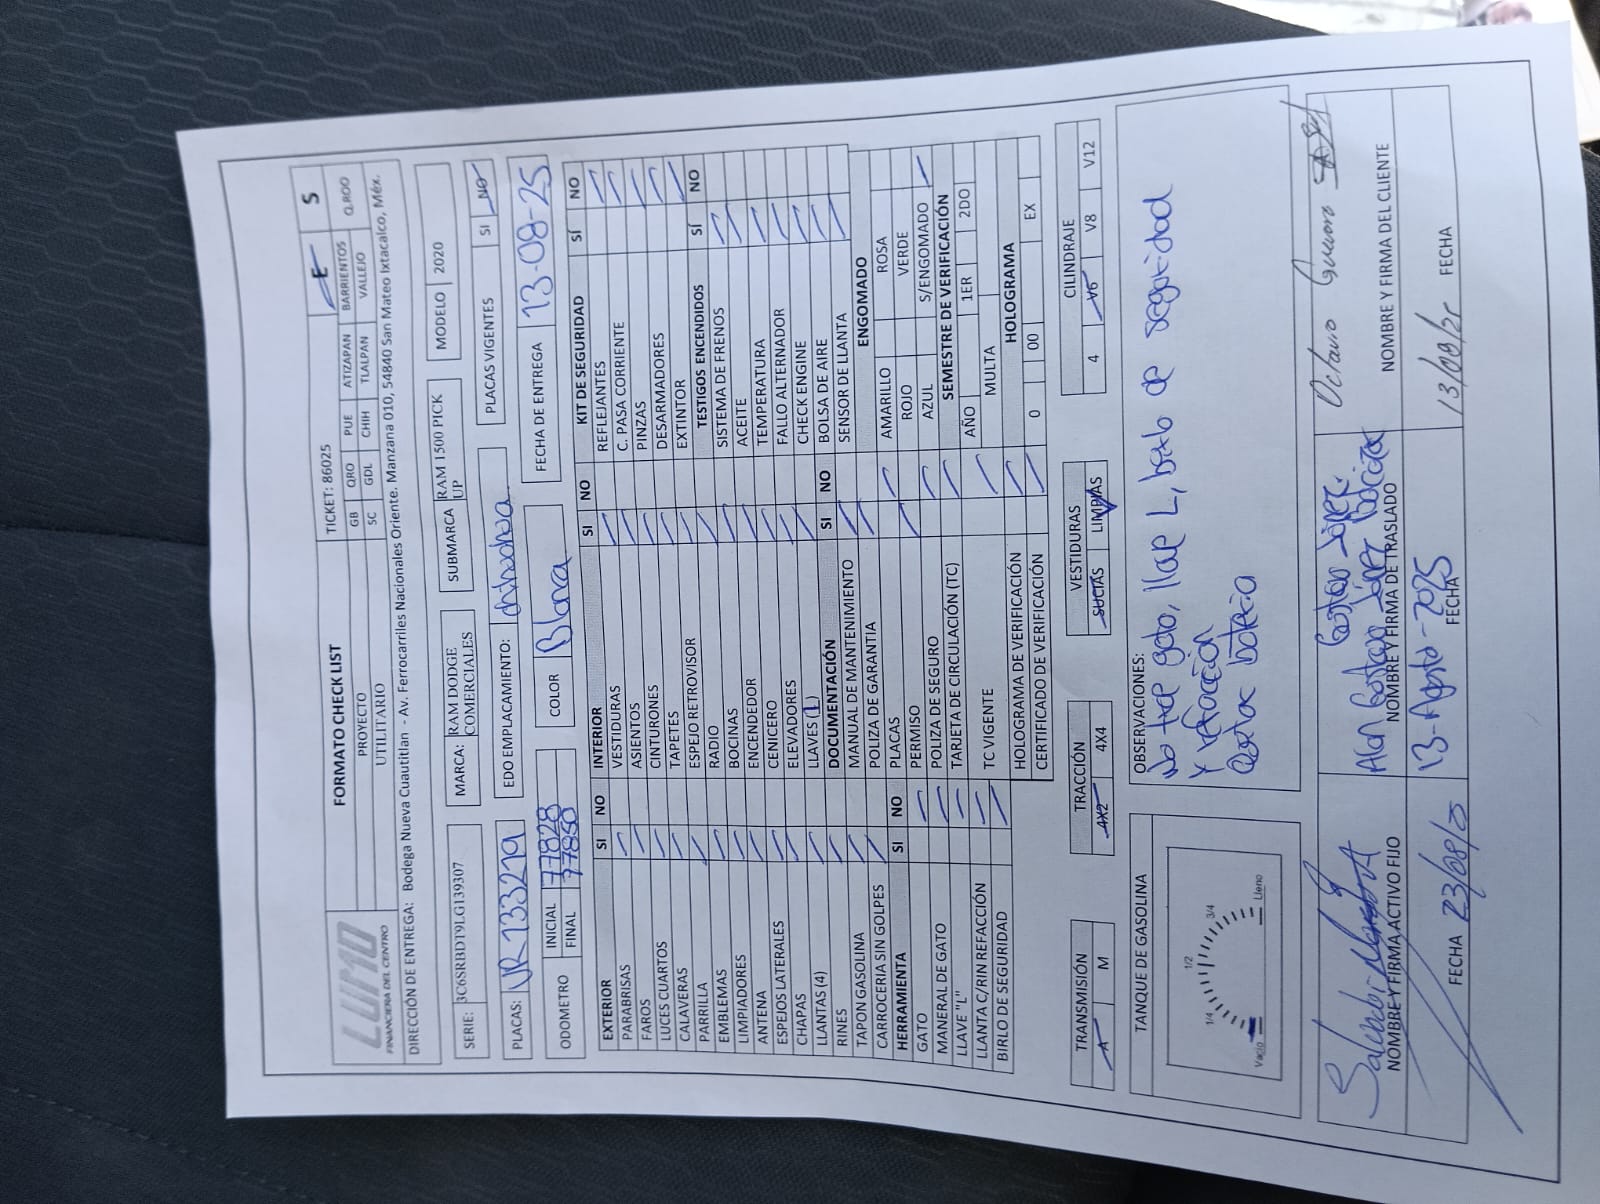 LUMO
FINANCIERA DEL CENTRO
FORMATO CHECK LIST
PROYECTO
UTILITARIO
TICKET: 86025
E S
GB QRO PUE ATIZAPAN BARRIENTOS Q.ROO
SC GDL CHIH TLALPAN VALLEJO
DIRECCIÓN DE ENTREGA: Bodega Nueva Cuautitlan - Av. Ferrocarriles Nacionales Oriente. Manzana 010, 54840 San Mateo Ixtacalco, Méx.
SERIE: 3C6SRBDT9LG139307 MARCA: RAM DODGE COMERCIALES SUBMARCA RAM 1500 PICK UP MODELO 2020
PLACAS: UR13329 EDO EMPLACAMIENTO: chihuahua PLACAS VIGENTES SI NO
ODOMETRO INICIAL 77828
FINAL 77850
COLOR Blanca FECHA DE ENTREGA 13-08-25
EXTERIOR SI NO
PARABRISAS /
FAROS /
LUCES CUARTOS /
CALAVERAS /
PARRILLA /
EMBLEMAS /
LIMPIADORES /
ANTENA /
ESPEJOS LATERALES /
CHAPAS /
LLANTAS (4) /
RINES /
TAPON GASOLINA /
CARROCERIA SIN GOLPES /
HERRAMIENTA SI NO
GATO /
MANERAL DE GATO /
LLAVE "L" /
LLANTA C/RIN REFACCIÓN /
BIRLO DE SEGURIDAD /
INTERIOR SI NO
VESTIDURAS /
ASIENTOS /
CINTURONES /
TAPETES /
ESPEJO RETROVISOR /
RADIO /
BOCINAS /
ENCENDEDOR /
CENICERO /
ELEVADORES /
LLAVES (1) /
DOCUMENTACIÓN SI NO
MANUAL DE MANTENIMIENTO /
POLIZA DE GARANTIA /
PLACAS /
PERMISO /
POLIZA DE SEGURO /
TARJETA DE CIRCULACIÓN (TC) /
TC VIGENTE /
HOLOGRAMA DE VERIFICACIÓN /
CERTIFICADO DE VERIFICACIÓN /
KIT DE SEGURIDAD SÍ NO
REFLEJANTES /
C. PASA CORRIENTE /
PINZAS /
DESARMADORES /
EXTINTOR /
TESTIGOS ENCENDIDOS SÍ NO
SISTEMA DE FRENOS /
ACEITE /
TEMPERATURA /
FALLO ALTERNADOR /
CHECK ENGINE /
BOLSA DE AIRE /
SENSOR DE LLANTA /
ENGOMADO
AMARILLO ROSA
ROJO VERDE
AZUL S/ENGOMADO /
SEMESTRE DE VERIFICACIÓN
AÑO 1ER 2DO
MULTA
HOLOGRAMA
0 00 EX
TRANSMISIÓN
A M
TRACCIÓN
4X2 4X4
VESTIDURAS
SUCIAS LIMPIAS
CILINDRAJE
4 V6 V8 V12
TANQUE DE GASOLINA
Vacio 1/4 1/2 3/4 Lleno
OBSERVACIONES:
No trae gato, llave L, birlo de seguridad
y refacción
batería
NOMBRE Y FIRMA ACTIVO FIJO
FECHA 23/08/
Gustavo López
Alan Gustavo López
NOMBRE Y FIRMA DE TRASLADO
13-Agosto-2025
FECHA
Octavio Guerrero
NOMBRE Y FIRMA DEL CLIENTE
FECHA